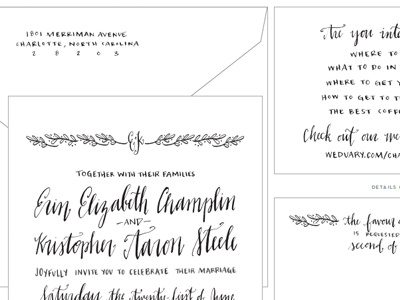 1801 MERRIMAN AVENUE
CHARLOTTE, NORTH CAROLINA
28203
E&K
TOGETHER WITH THEIR FAMILIES
Erin Elizabeth Champlin
—AND—
Kristopher Aaron Steele
JOYFULLY INVITE YOU TO CELEBRATE THEIR MARRIAGE
Saturday, the twenty-first of June
Are you
WHERE TO
WHAT TO DO IN
WHERE TO GET
HOW TO GET TO
THE BEST
Check out our
WEDUARY.COM/
DETAILS
the favour
IS REQUESTED
second of